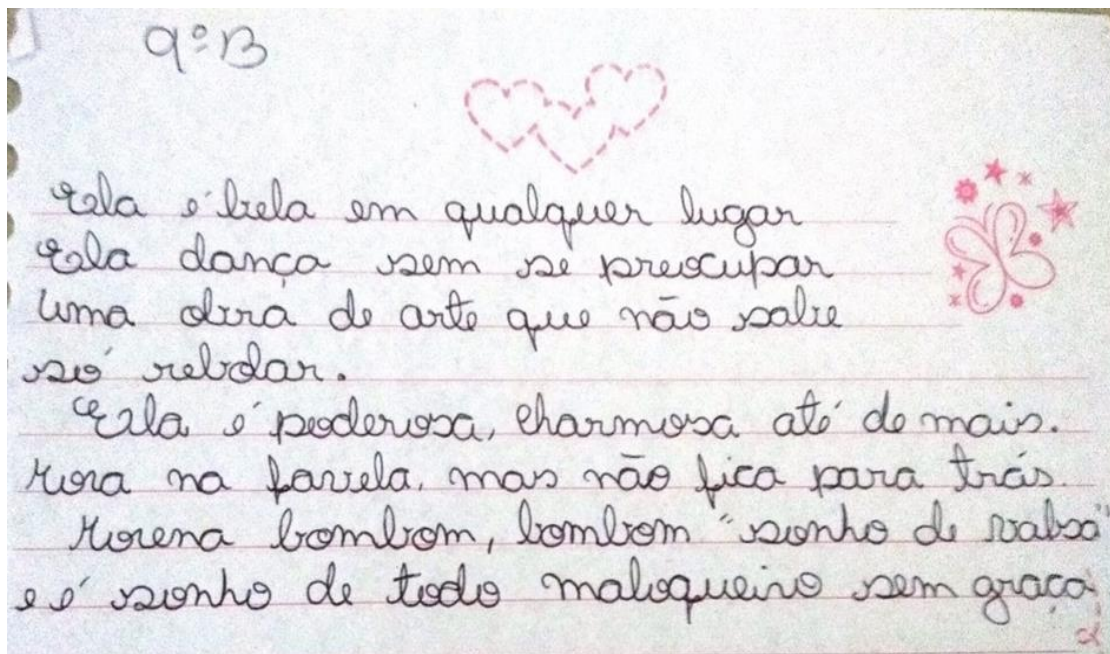 9ºB
Ela é bela em qualquer lugar
Ela dança sem se preocupar
Uma obra de arte que não sabe
só rebolar.
Ela é poderosa, charmosa até de mais.
Mora na favela, mas não fica para trás.
Morena bombom, bombom "sonho de valsa"
e é sonho de todo maloqueiro sem graça